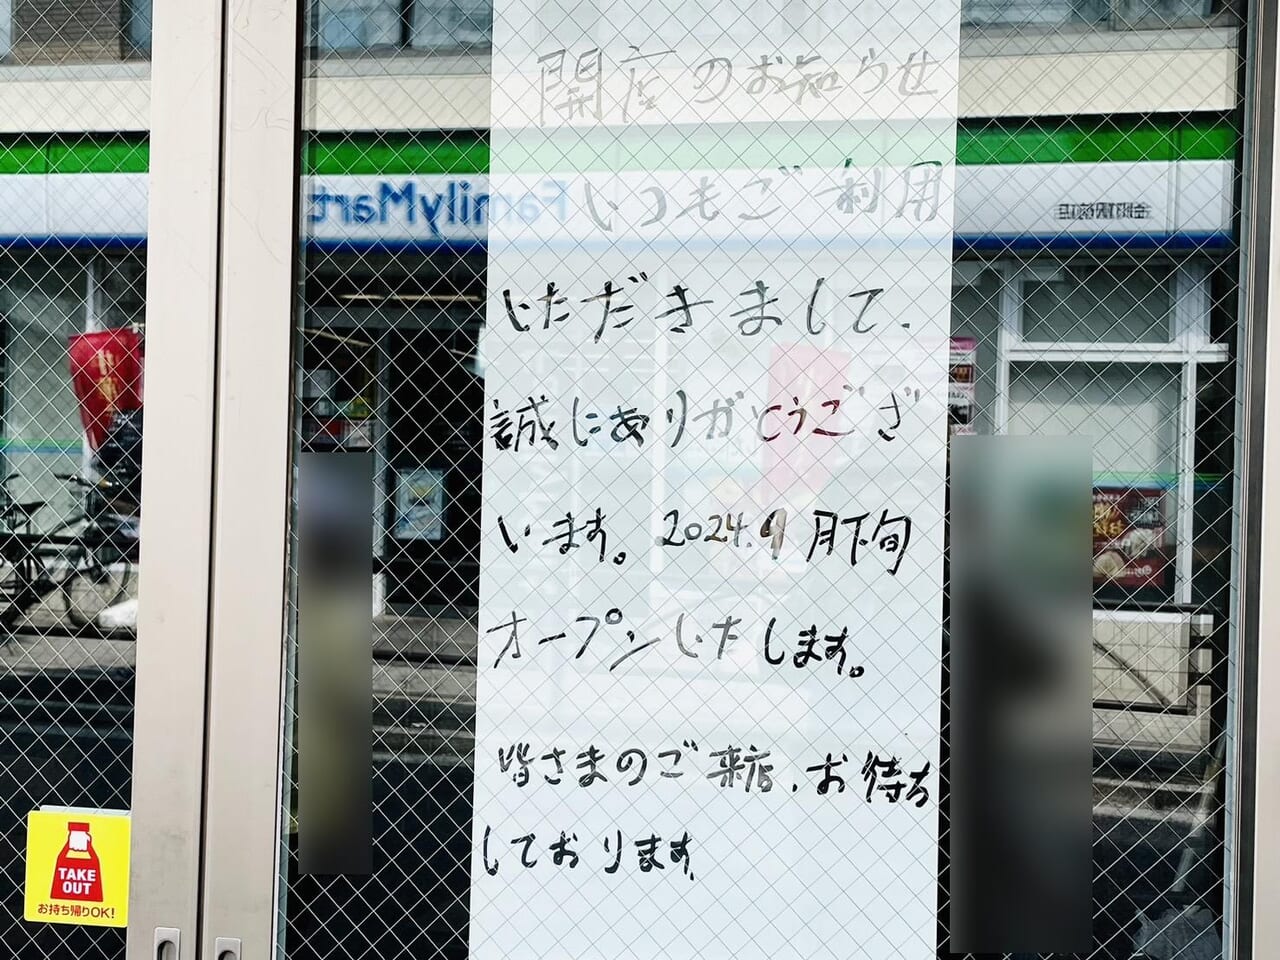 開店のお知らせ
いつもご利用
いただきまして、
誠にありがとうござ
います。2024.9月下旬
オープンいたします。
皆さまのご来店、お待ち
しております。
FamilyMart
TAKE
OUT
お持ち帰りOK!